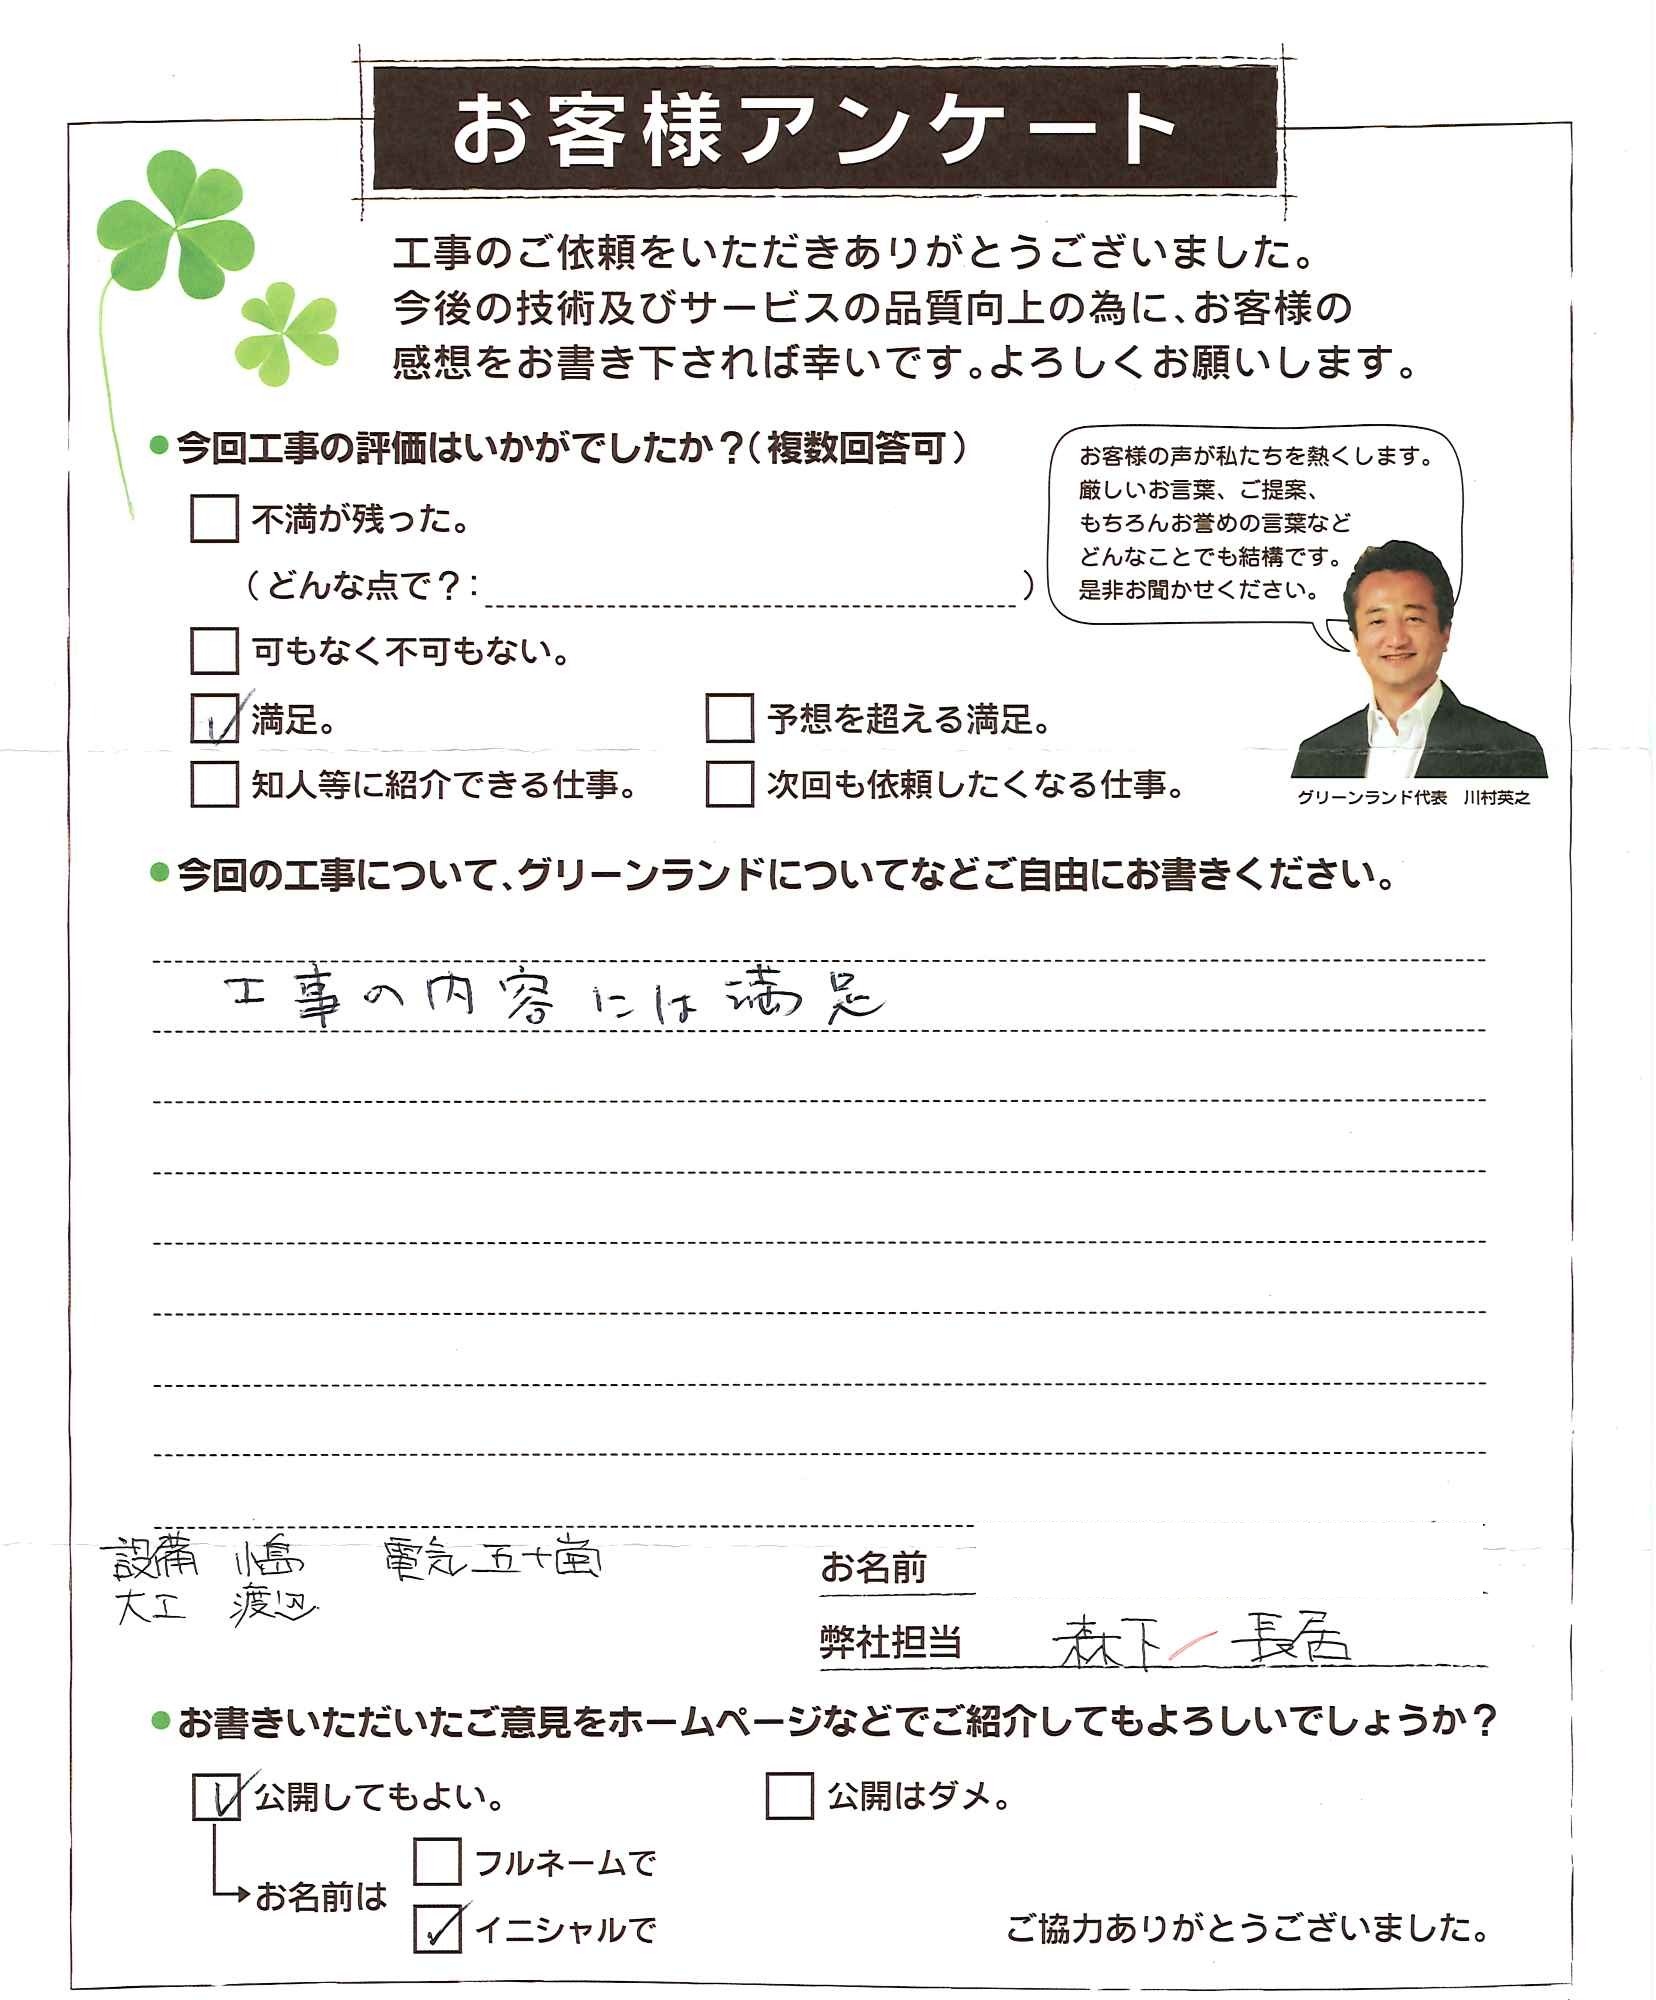 お客様アンケート
工事のご依頼をいただきありがとうございました。
今後の技術及びサービスの品質向上の為に、お客様の
感想をお書き下されば幸いです。よろしくお願いします。
●今回工事の評価はいかがでしたか？（複数回答可）
不満が残った。
（どんな点で？：　）
可もなく不可もない。
満足。
予想を超える満足。
知人等に紹介できる仕事。
次回も依頼したくなる仕事。
お客様の声が私たちを熱くします。
厳しいお言葉、ご提案、
もちろんお誉めの言葉など
どんなことでも結構です。
是非お聞かせください。
グリーンランド代表　川村英之
●今回の工事について、グリーンランドについてなどご自由にお書きください。
工事の内容には満足
設備　小島　電気 五十嵐
大工　渡辺
お名前
弊社担当　森下／長居
●お書きいただいたご意見をホームページなどでご紹介してもよろしいでしょうか？
公開してもよい。
公開はダメ。
お名前は
フルネームで
イニシャルで
ご協力ありがとうございました。